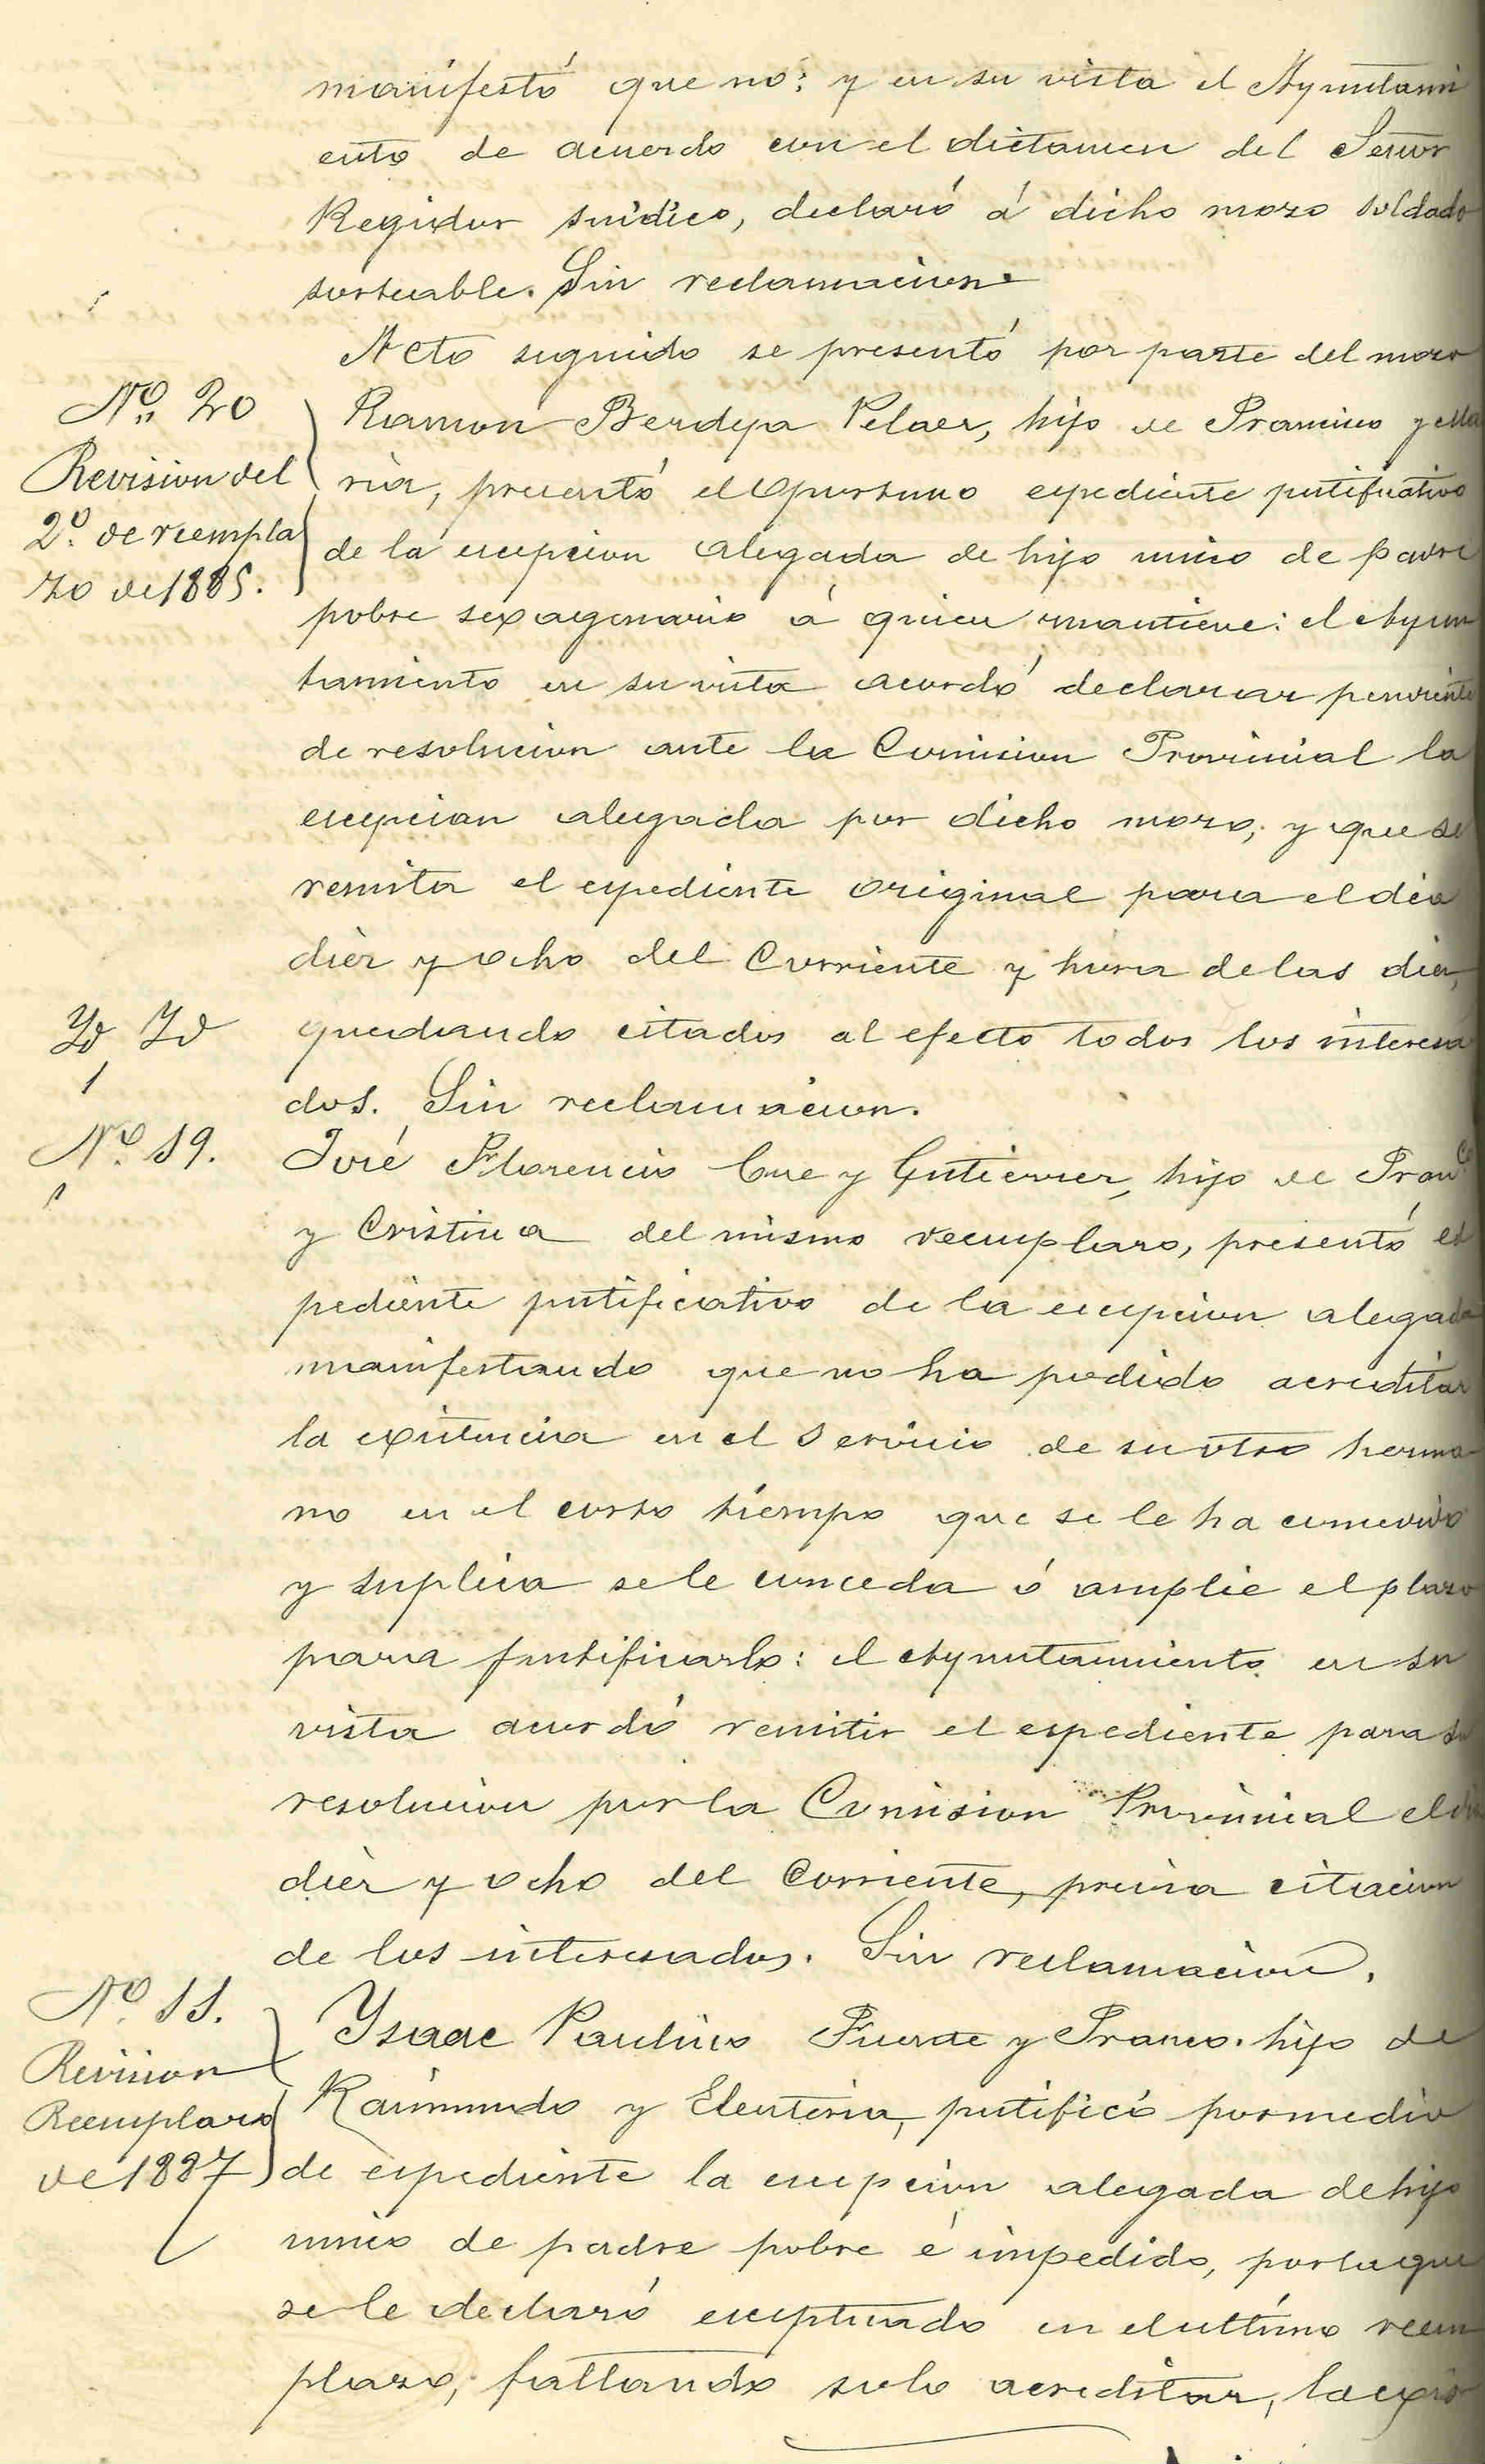 manifestó que nó: y en su vista el Ayuntami
ento de acuerdo con el dictamen del Señor
Regidor síndico, declaró á dicho mozo soldado
sorteable. Sin reclamacion.
Acto seguido se presentó por parte del mozo
Nº 20
Ramon Berdeja Pelaez, hijo de Francisco y Ma
Revision del
ria, presentó el oportuno espediente justificativo
2º. de reempla
de la escepcion alegada de hijo unico de padre
zo de 1885.
pobre sexagenario á quien mantiene: el Ayun
tamiento en su vista acordó declarar pendiente
de resolucion ante la Comision Provincial la
escepcion alegada por dicho mozo; y que se
remita el espediente original para el dia
diez y ocho del Corriente y hora de las diez,
Yd Yd
quedando citados al efecto todos los interesa
dos. Sin reclamacion.
Nº 19.
José Florencio Cue y Gutierrez, hijo de Franco
y Cristina del mismo reemplazo, presentó es
pediente justificativo de la escepcion alegada
manifestando que no ha podido acreditar
la existencia en el servicio de su otro herma
no en el corto tiempo que se le ha concedido
y suplica se le conceda ó amplie el plazo
para justificarlo: el Ayuntamiento en su
vista acordó remitir el espediente para su
resolucion por la Comision Provincial el dia
diez y ocho del Corriente, previa citacion
de los interesados. Sin reclamacion.
Nº 11.
Ysaac Paulino Fuente y Franco. hijo de
Revision
Raimundo y Eleuteria, justificó por medio
Reemplazo
de 1887
de espediente la escepcion alegada de hijo
unico de padre pobre é impedido, por la que
se le declaró esceptuado en el ultimo reem
plazo; faltando solo acreditar, la exis